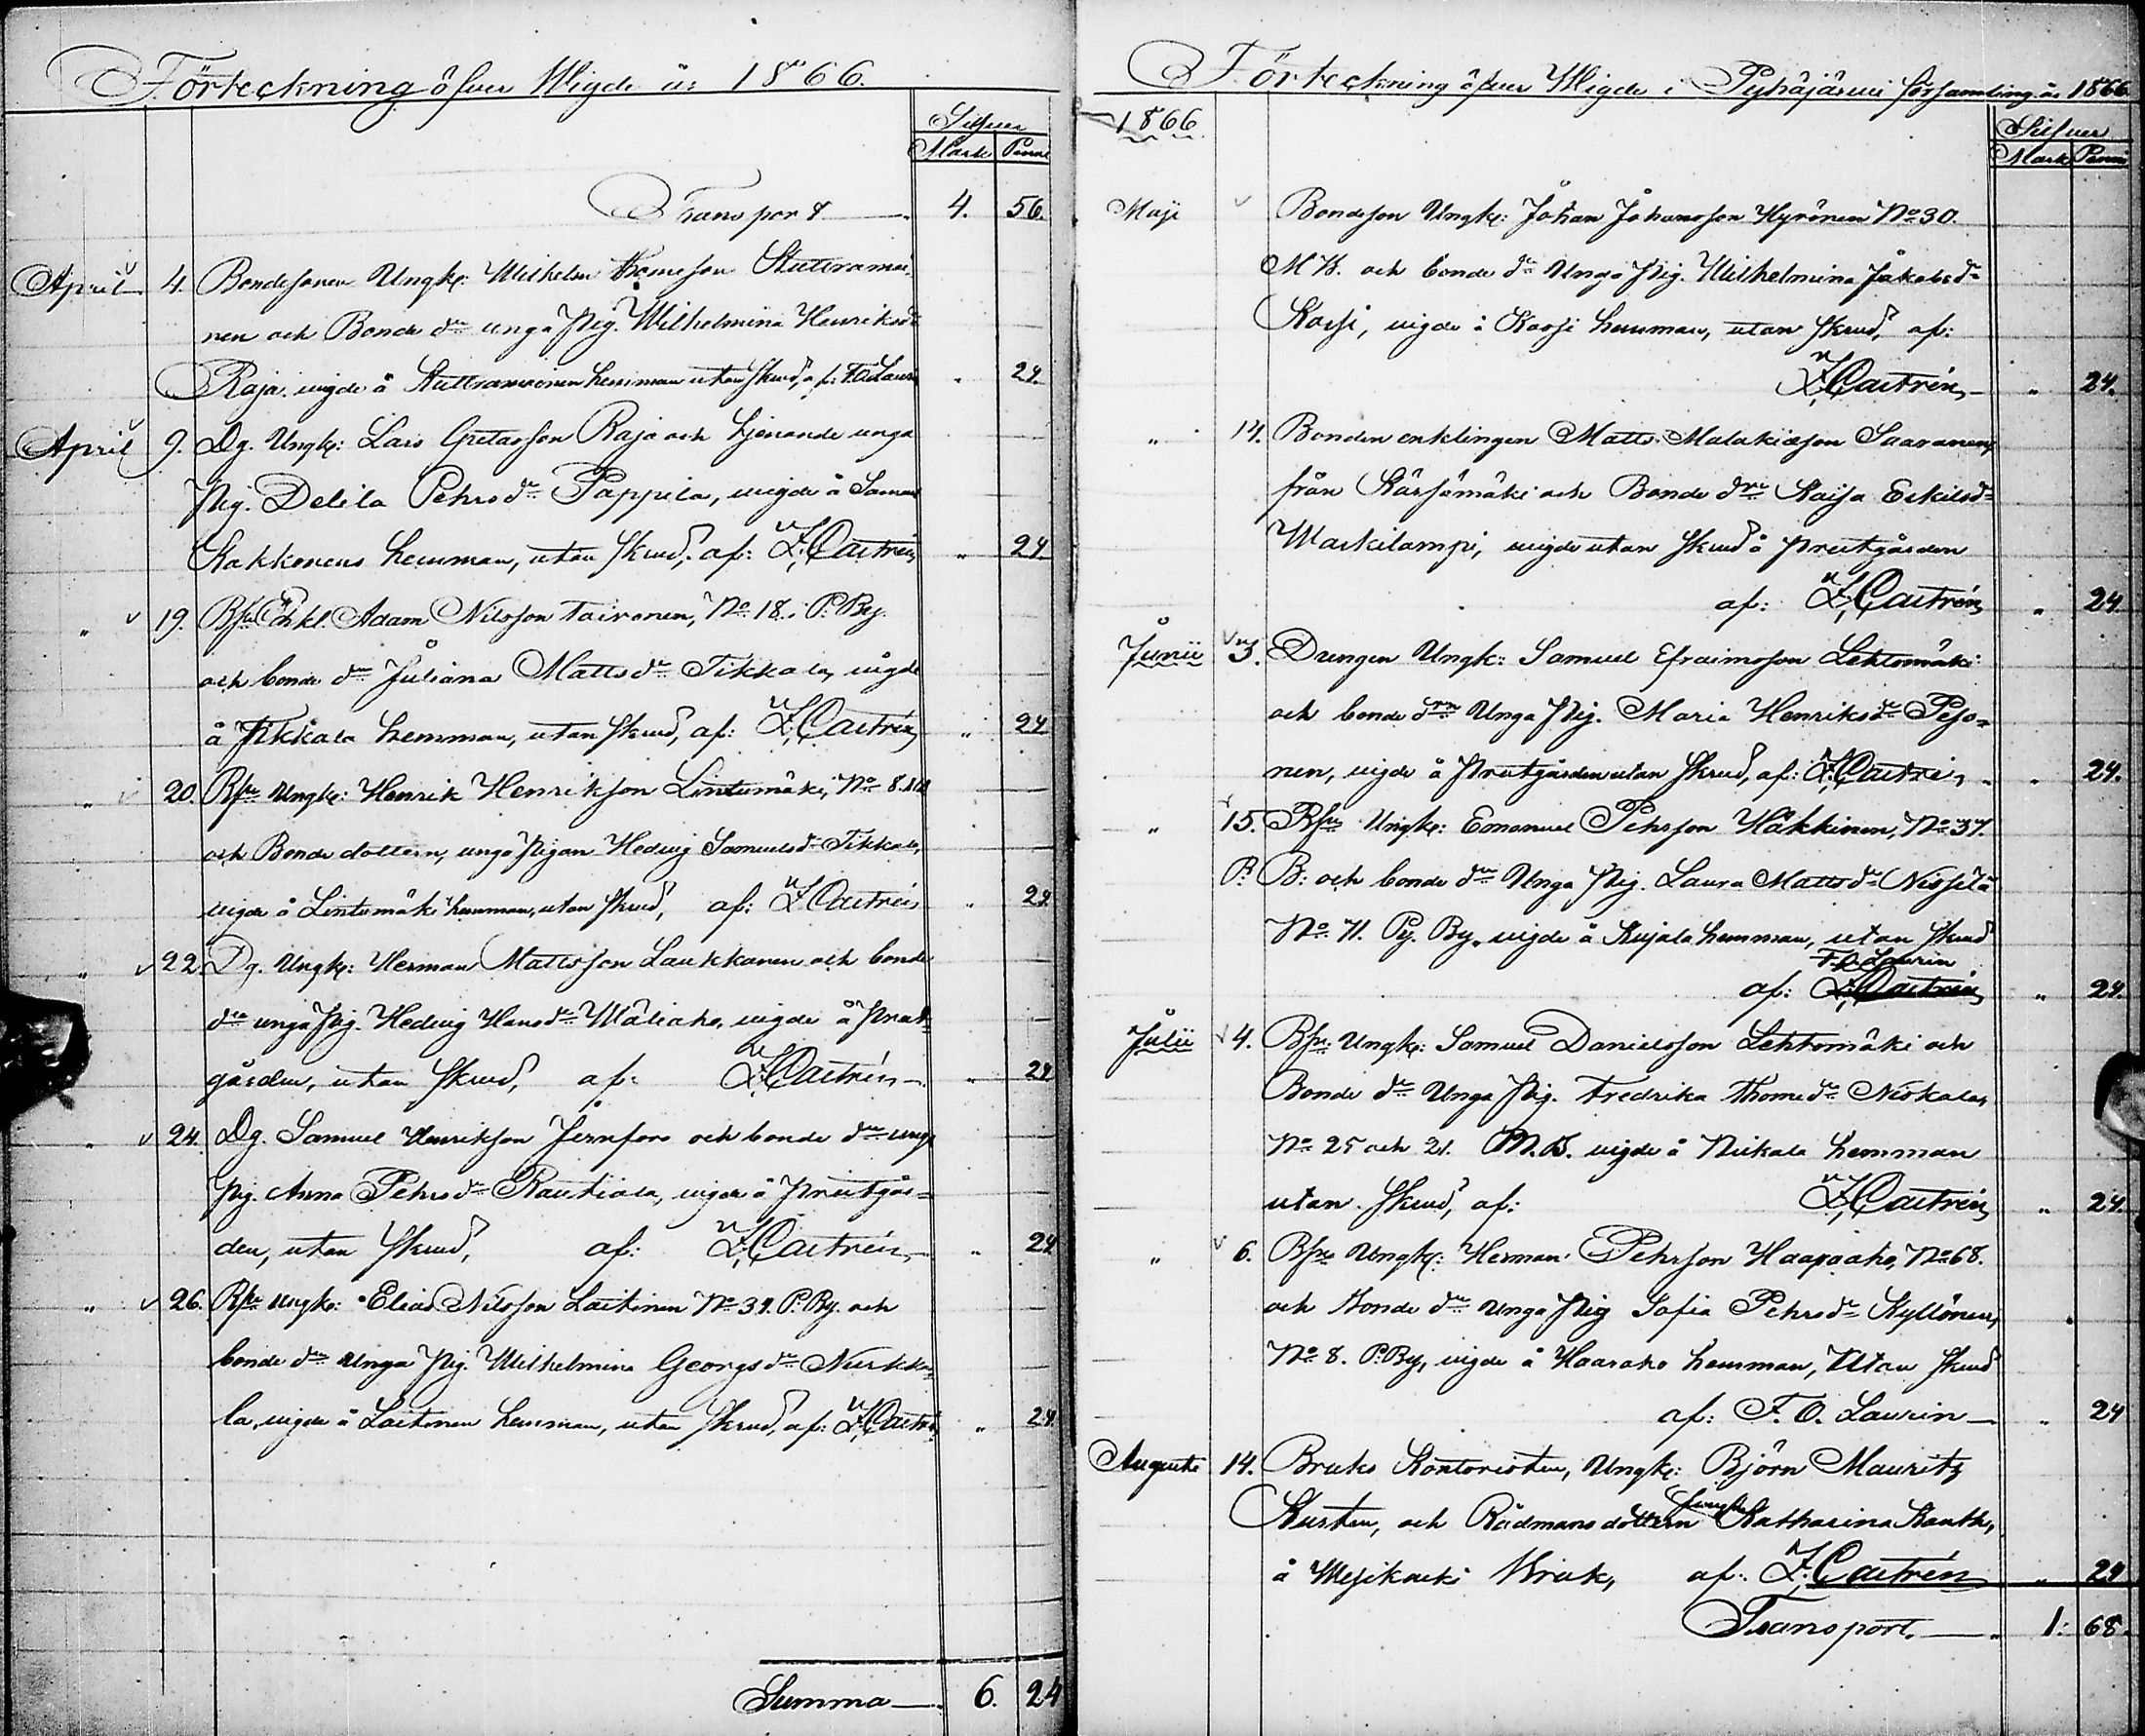 Förteckning öfver Wigde år 1866.
Silfver
Mark Penni
Transport 4. 56.
April 4. Bondesonen Ungk: Wilhelm Thomeson
nen och Bonde dr unga Pig. Wilhelmina Henriksdr
Raja, vigde å hemman utan skrud, af: F.O. Laurin „ 24.
April 9. Dg. Ungk: Lars Gretasson Raja och tjenande unga
Pig. Delila Pehrsdr Pappila, vigde å
Kakkonens hemman, utan skrud, af: Z. Castrén „ 24.
„ 19. Bsn Enkl. Adam Nilsson Taivonen, No 18. P. By.
och bonde dr Juliana Mattsdr Tikkala, vigde
å Tikkala hemman, utan skrud, af: Z. Castrén „ 24.
„ 20. Bsn Ungk: Henrik Henrikson Lintumäki, No 8.
och Bonde dottern, unga Pigan Hedvig Samuelsdr Tikkala,
vigde å Lintumäki hemman, utan skrud, af: Z. Castrén „ 24.
„ 22. Dg. Ungk: Herman Mattsson Laukkanen och bonde
dr unga Pig. Hedvig Hansdr Wäliaho, vigde å Prest-
gården, utan skrud, af: Z. Castrén „ 24
„ 24. Dg. Samuel Henrikson Jernfors och bonde dr unga
Pig. Anna Pehrsdr Rautiola, vigde å prestgår=
den, utan skrud, af: Z. Castrén „ 24
„ 26. Bsn Ungk: Elias Nilsson Laitinen No 39. P. By. och
bonde dr Unga Pig. Wilhelmina Georgsdr Nurkka-
la, vigde å Laitinen hemman, utan skrud, af: Z. Castrén „ 24.
Summa 6. 24
Förteckning öfver Wigde i Pyhäjärvi församling år 1866.
1866
Silfver
Mark Penni
Maji Bondeson Ungk: Johan Johansson Hyvönen No 30.
M B. och bonde dr Unga Pig. Wilhelmina Jakobsdr
Korsi, vigde å Korsi hemman, utan skrud, af:
Z. Castrén „ 24.
„ 14. Bonden enklingen Matts Malakiasson Saaranen,
från Kärsämäki och Bonde dr Kaisa Eskilsdr
Waskilampi, vigde utan skrud å prestgården
af: Z. Castrén „ 24.
Junii 3. Drengen Ungk: Samuel Efraimsson Lehtomäki
och bonde drn Unga Pig. Maria Henriksdr Peso=
nen, vigde å Prestgården utan skrud, af: Z. Castrén „ 24.
„ 15. Bsn Ungk: Emanuel Pehrson Häkkinen, No 37.
P. B: och bonde dr Unga Pig. Laura Mattsdr Nissilä
No 71. Py. By. vigde å Kujala hemman, utan skrud
F.O. Laurin
af: Z. Castrén „ 24.
Julii 4. Bsn. Ungk: Samuel Danielsson Lehtomäki och
Bonde dr Unga Pig. Fredrika Thomedr Niskala,
No 25 och 21. M. B. vigde å Niskala hemman
utan skrud, af: Z. Castrén „ 24.
„ 6. Bsn Ungk: Herman Pehrson Haapaaho, No 68.
och Bonde dr Unga Pig Sofia Pehrsdr Kyllönen,
No 8. P. By, vigde å Haapaho hemman, Utan skrud
af: F. O. Laurin „ 24
Augusti 14. Bruks Kontoristen, Ungk: Björn Mauritz
Kurten, och Rådmansdottern Katharina Kanth,
å Wesikoski Bruk, af: Z. Castrén „ 24
Transport. 1: 68.